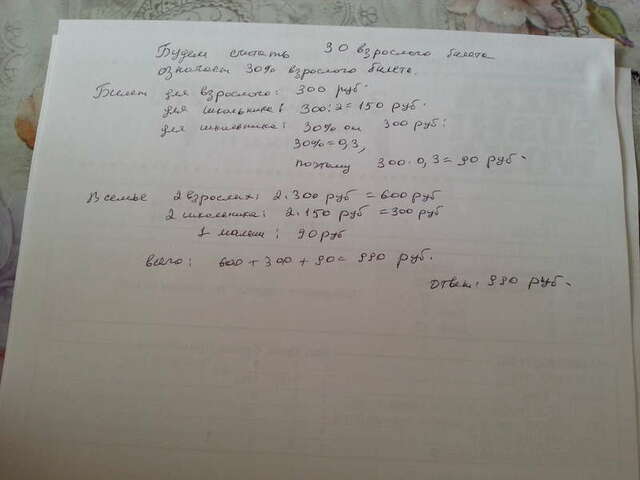 Будем считать 30 взрослого билета
означает 30% взрослого билета.
Билет для взрослого: 300 руб.
для школьника: 300:2=150 руб.
для школьника: 30% от 300 руб:
30%=0,3,
поэтому 300·0,3=90 руб.
В семье 2 взрослых: 2·300 руб =600 руб
2 школьника: 2·150 руб =300 руб
1 малыш: 90 руб
всего: 600+300+90=990 руб.
ответ: 990 руб.